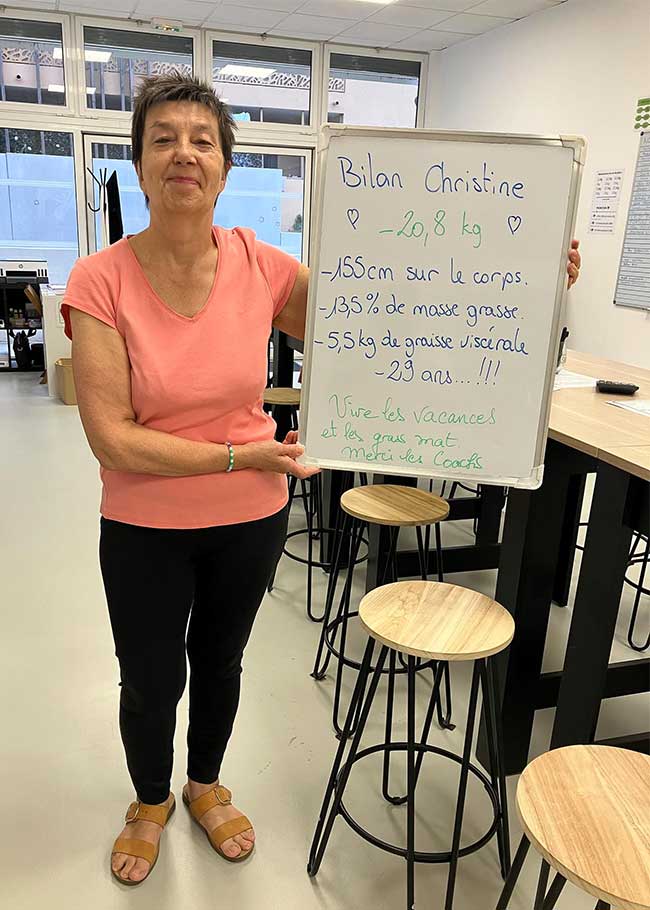 Bilan Christine
-20,8 kg
-155cm sur le corps.
-13,5% de masse grasse.
-5,5kg de graisse viscérale
-29 ans....!!!
Vive les vacances
et les grass mat.
Merci les Coachs